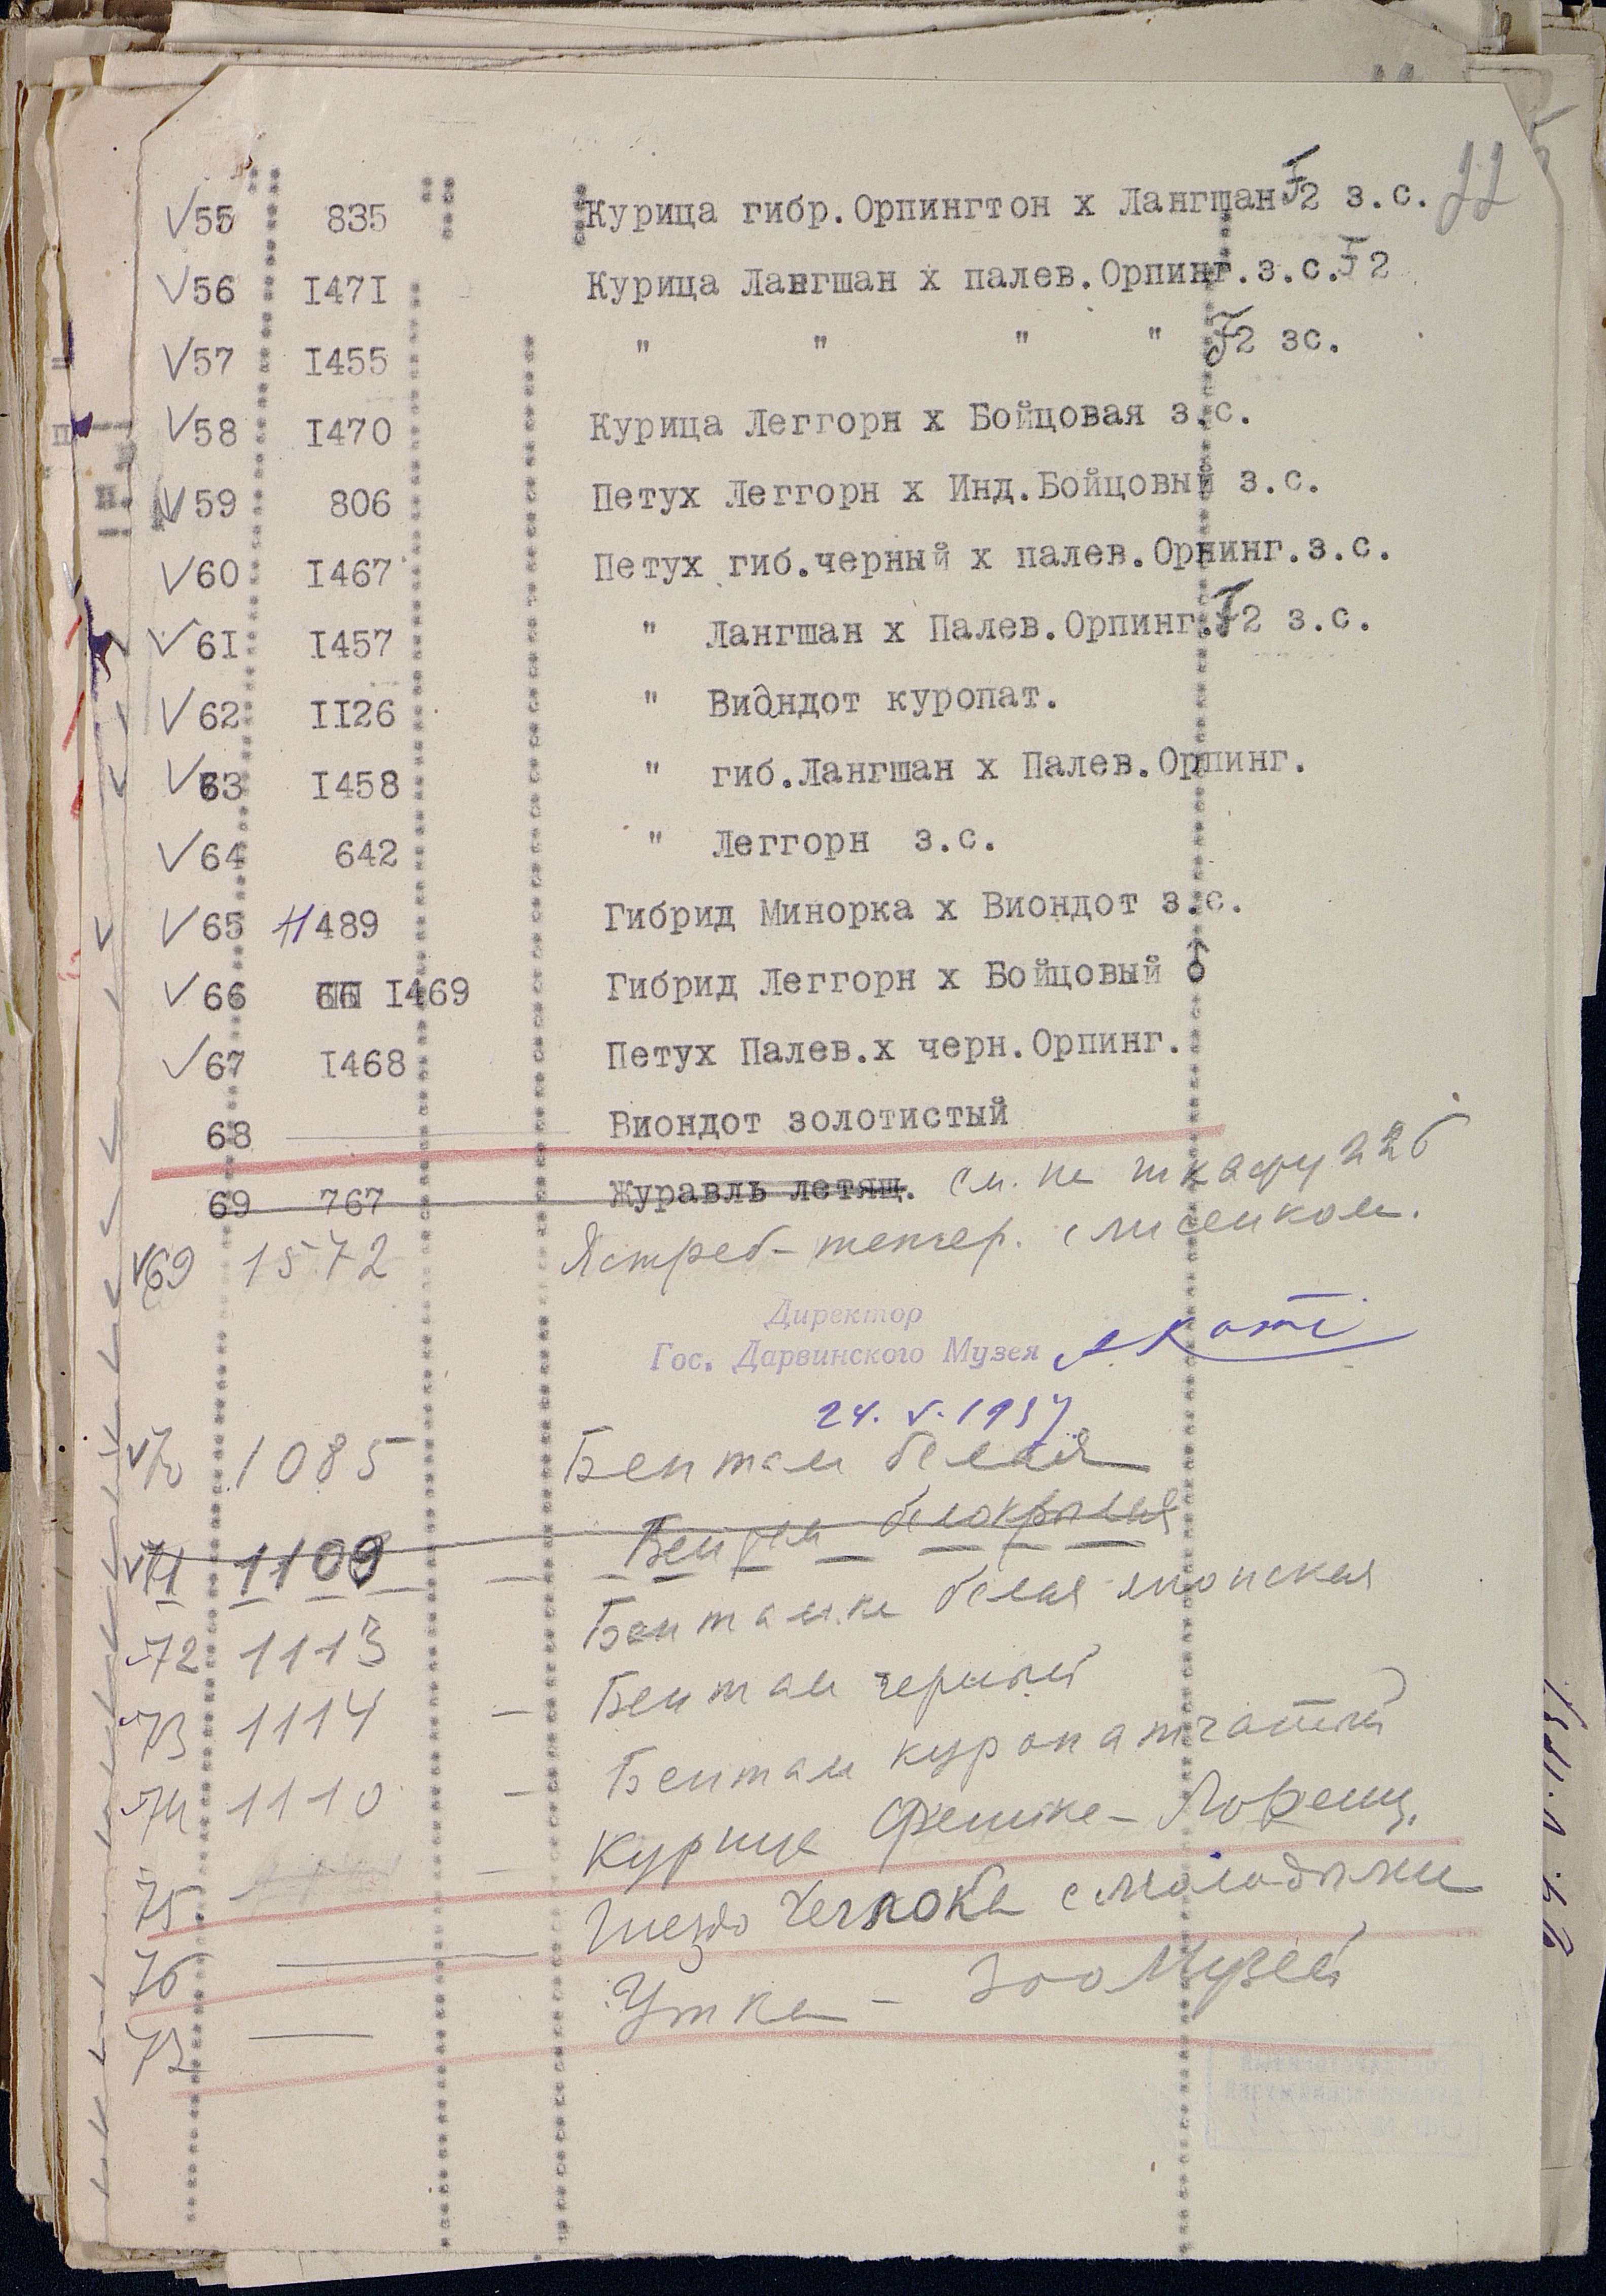 22
✓55 835 Курица гибр.Орпингтон х Лангшан F2 з.с.
✓56 I47I Курица Лангшан х палев.Орпинг.з.с.F2
✓57 I455 " " " " F2 зс.
✓58 I470 Курица Леггорн х Бойцовая з.с.
✓59 806 Петух Леггорн х Инд.Бойцовый з.с.
✓60 I467 Петух гиб.черный х палев.Орпинг.з.с.
✓6I I457 " Лангшан х Палев.Орпинг.F2 з.с.
✓62 II26 " Виандот куропат.
✓63 I458 " гиб.Лангшан х Палев.Орпинг.
✓64 642 " Леггорн з.с.
✓65 489 Гибрид Минорка х Виондот з.с.
✓66 I469 Гибрид Леггорн х Бойцовый ♂
✓67 I468 Петух Палев.х черн.Орпинг.
68 Виондот золотистый
69 767 Журавль летящ. см. на шкафу 22б
✓69 1572 Ястреб-тетер. с лисенком.
Директор
Гос. Дарвинского Музея АКотс
24.V.1937
✓70 1085 Бентам белая
✓71 1109 Бентам белокрылая
72 1113 Бентамка белая японская
73 1114 – Бентам черный
74 1110 – Бентам куропатчатый
75 – Курица Фешке-Лоренц.
76 — Гнездо Чеглока с молодыми
Утка – Зоо Музей